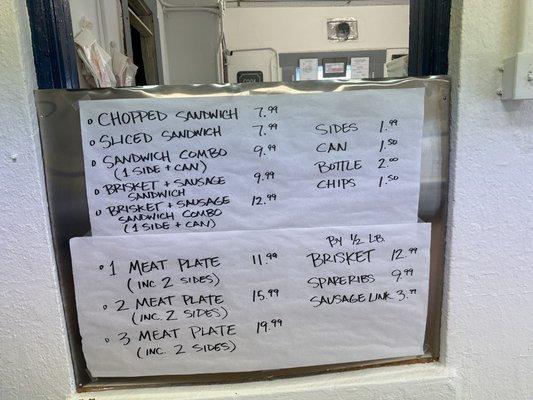 CHOPPED SANDWICH 7.99
SLICED SANDWICH 7.99
SANDWICH COMBO 9.99
(1 SIDE + CAN)
BRISKET + SAUSAGE 9.99
SANDWICH
BRISKET + SAUSAGE 12.99
SANDWICH COMBO
(1 SIDE + CAN)
SIDES 1.99
CAN 1.50
BOTTLE 2.00
CHIPS 1.50
1 MEAT PLATE 11.99
(INC 2 SIDES)
2 MEAT PLATE 15.99
(INC. 2 SIDES)
3 MEAT PLATE 19.99
(INC. 2 SIDES)
BY 1/2 LB.
BRISKET 12.99
SPARERIBS 9.99
SAUSAGE LINK 3.99